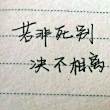 若非死别
决不相离